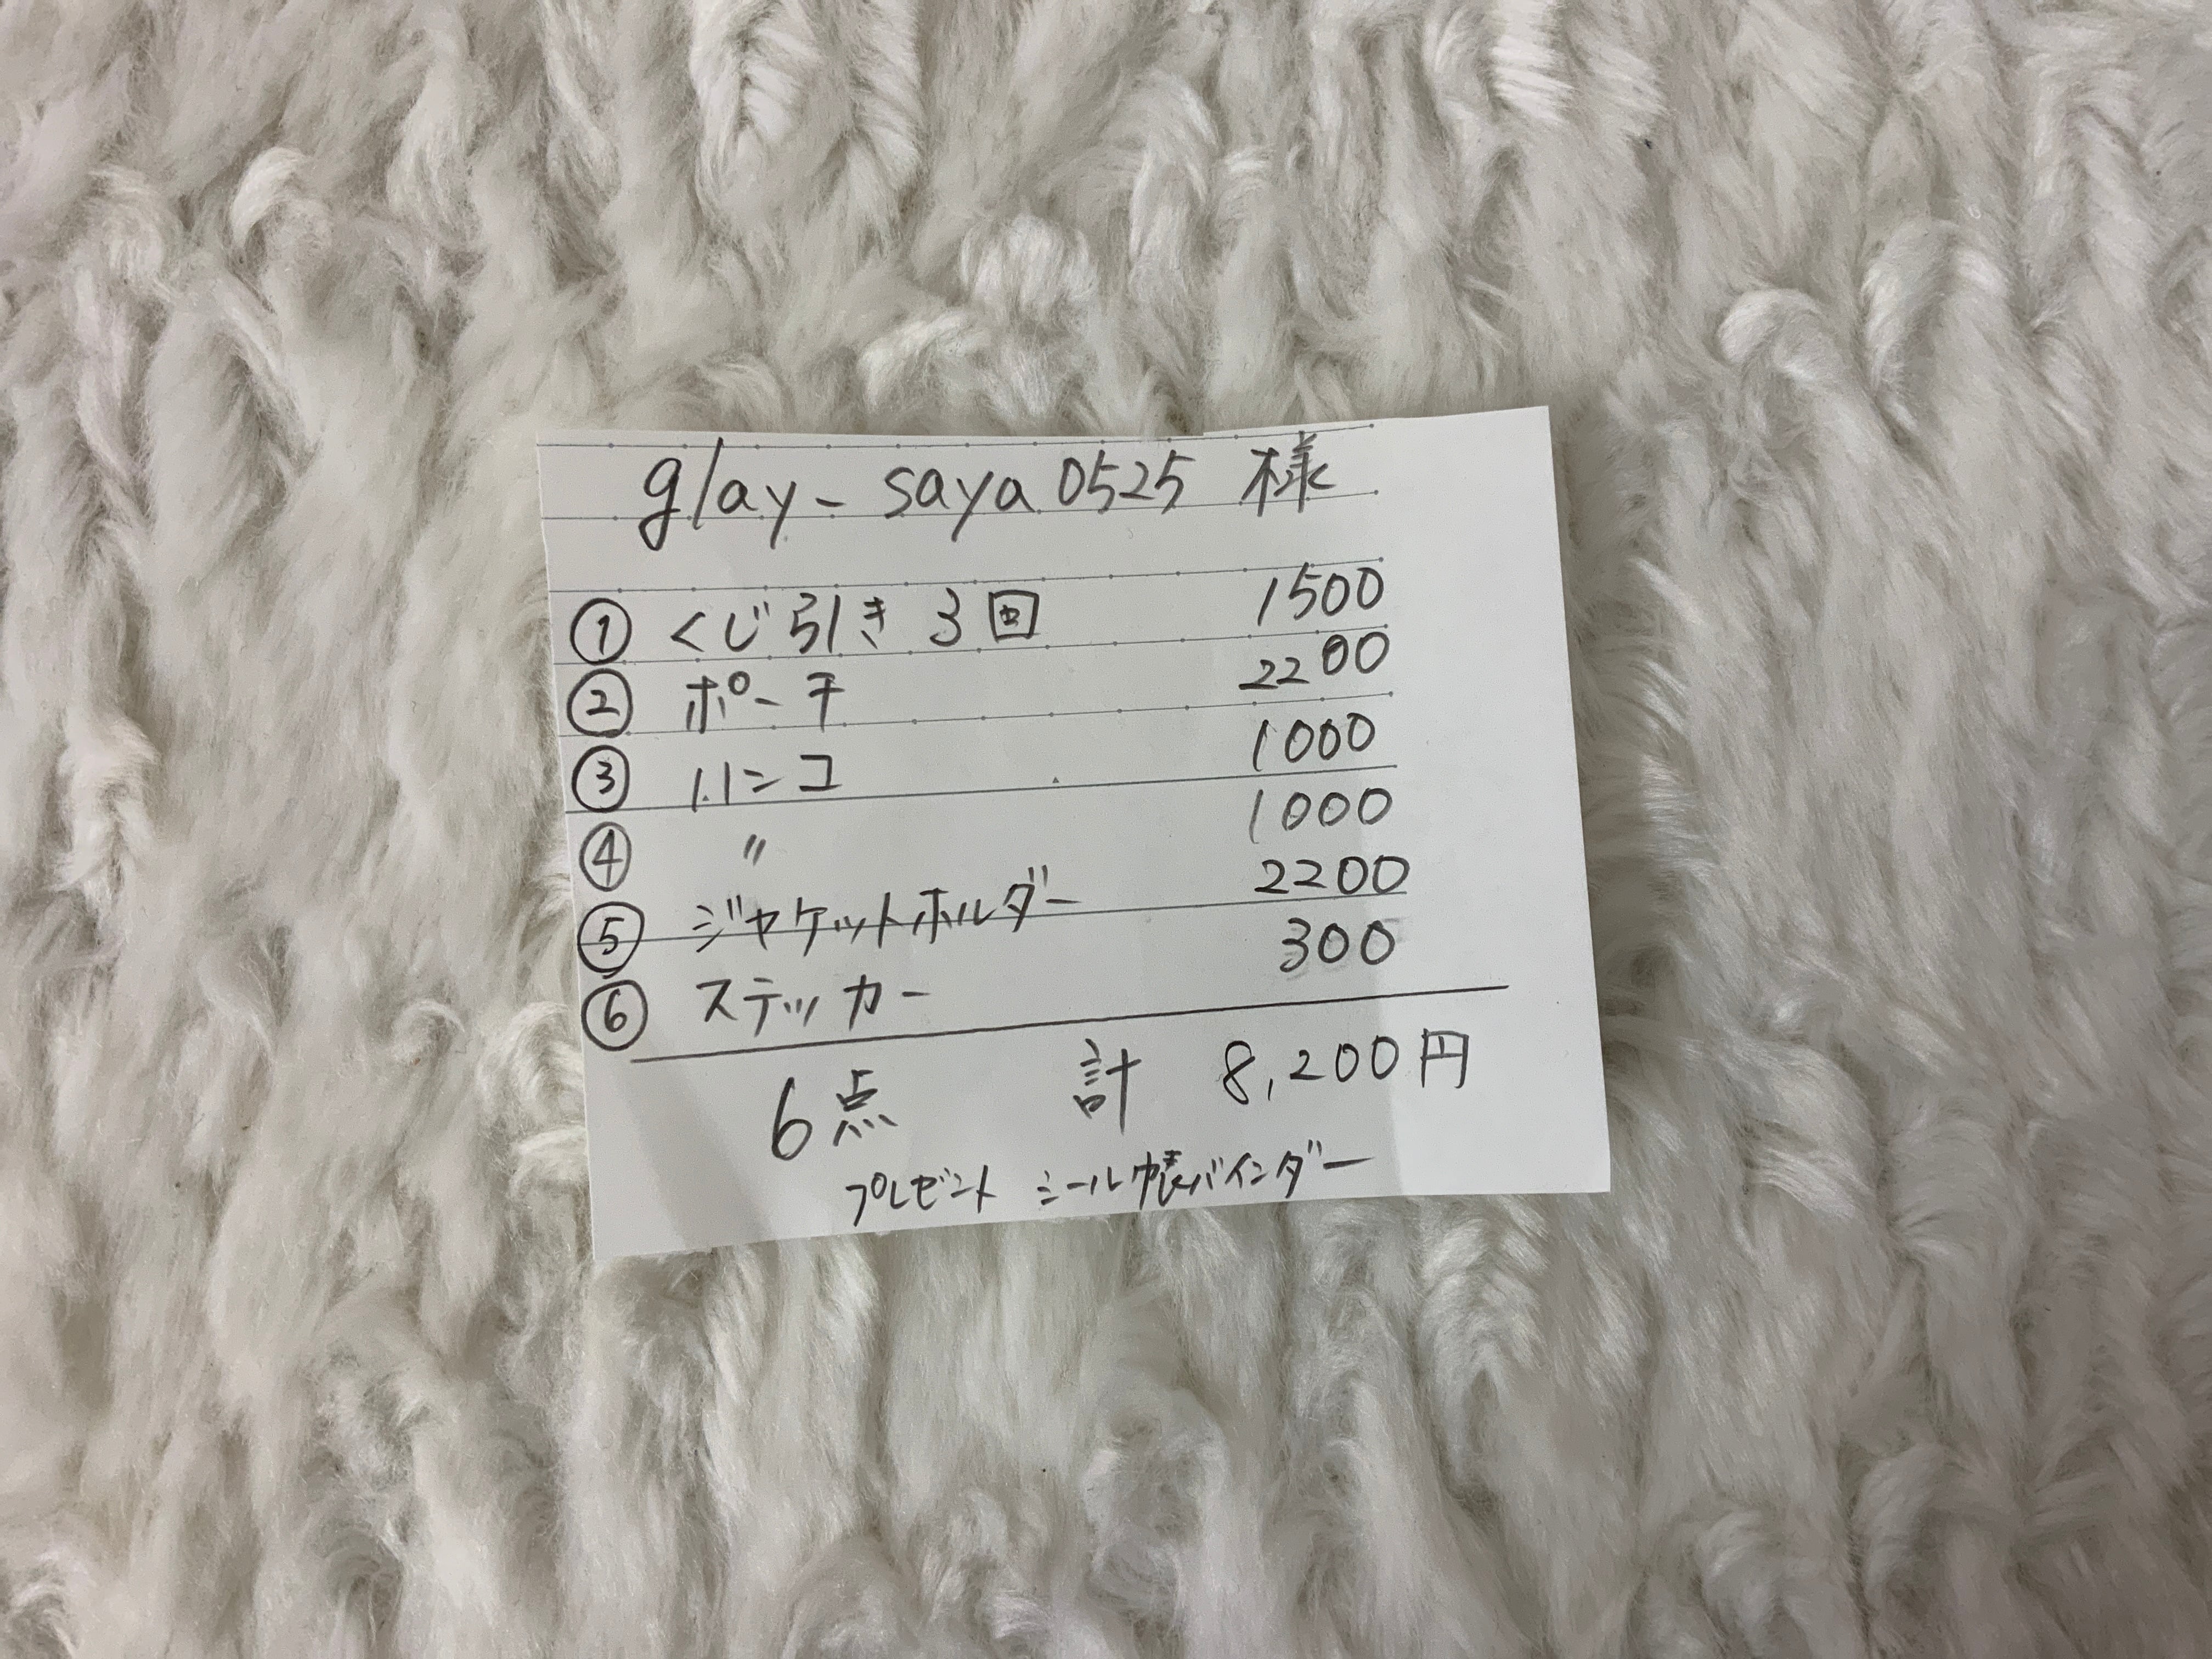 glay-saya0525 様
① くじ引き 3回 1500
② ポーチ 2200
③ ハンコ 1000
④ 〃 1000
⑤ ジャケットホルダー 2200
⑥ ステッカー 300
6点 計 8,200円
プレゼント シール帳バインダー